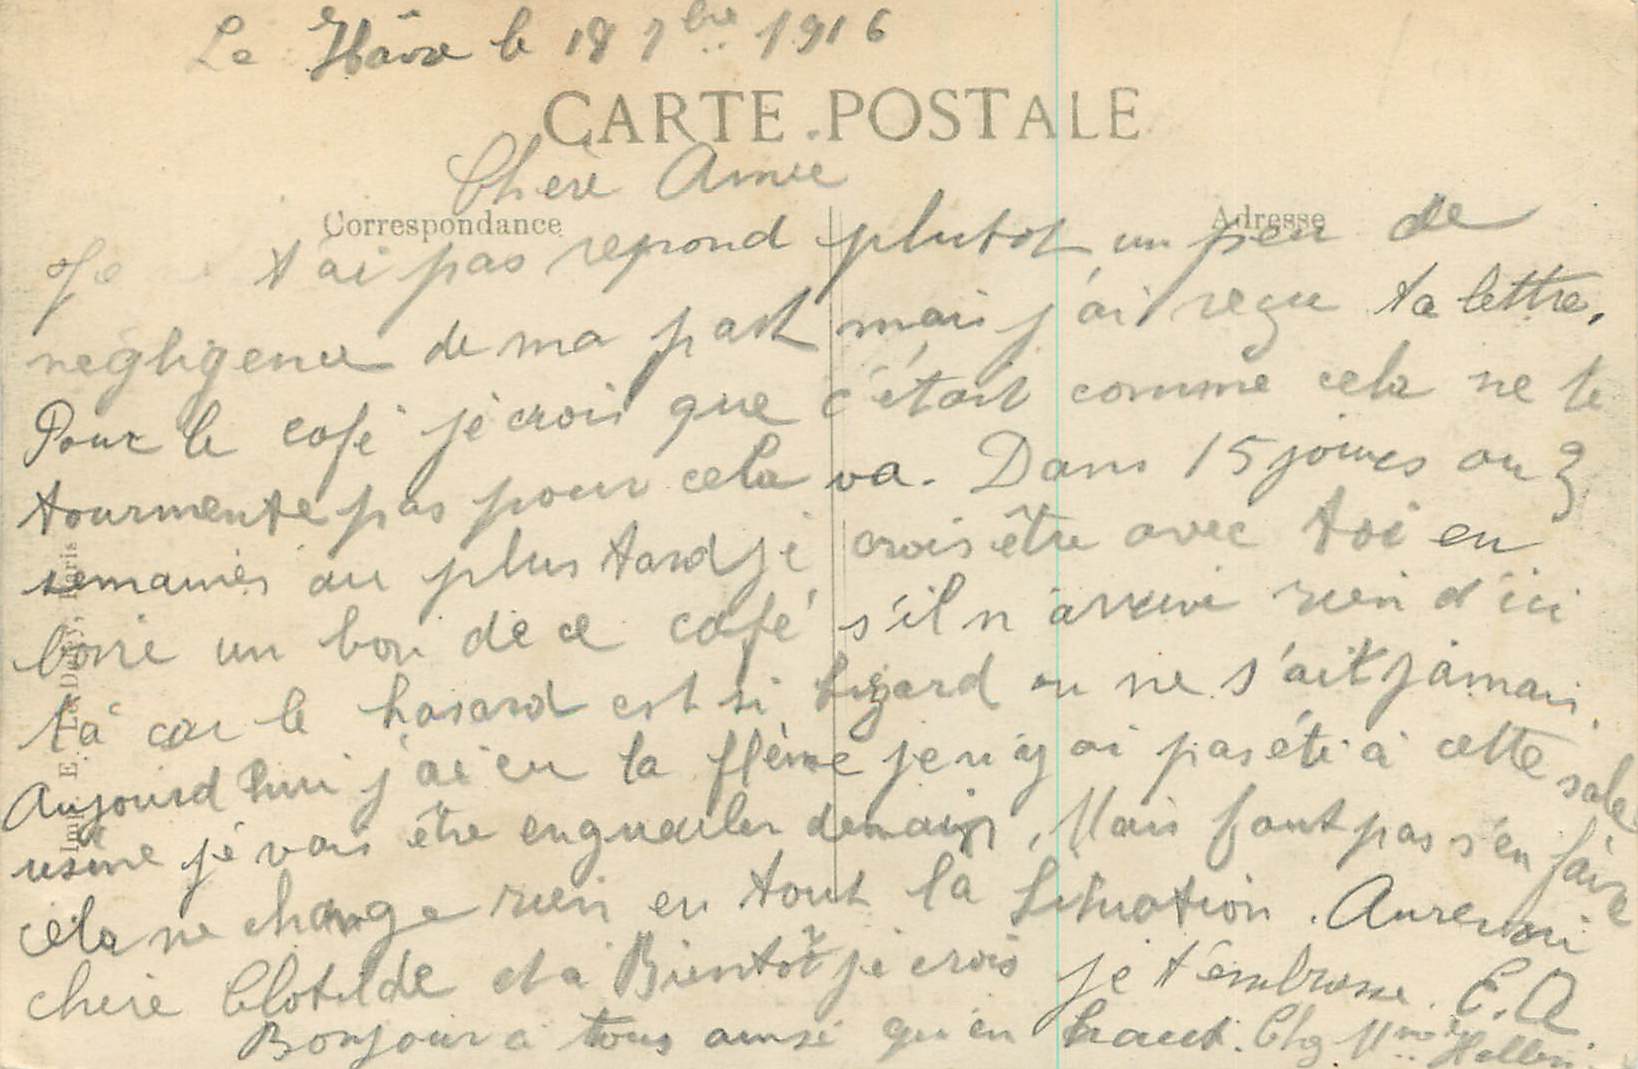 Le Hâvre le 18 7bre 1916
CARTE POSTALE
Chère Amie
Correspondance
Adresse
Je t'ai pas repond plutot un peu de
négligence de ma part mais j'ai reçu ta lettre.
Pour le café je crois que c'était comme cela ne te
tourmente pas pour cela va. Dans 15 jours ou 3
semaines au plus tard je crois être avec toi en
boire un bon de ce café s'il n'arrive rien d'ici
là car le hasard est si bizard on ne s'ait jamais.
Aujourd'hui j'ai eu la flème je n'y ai pas été à cette sale
usine je vais être engueuler demain, Mais faut pas s'en faire
cela ne change rien en tout la situation. Aurevoir
chère Clotilde et à Bientôt je crois je t'embrasse. E.A
Bonjour à tous ainsi qu'en haut. Chez Mme
Imp. E. Le Deley, Paris